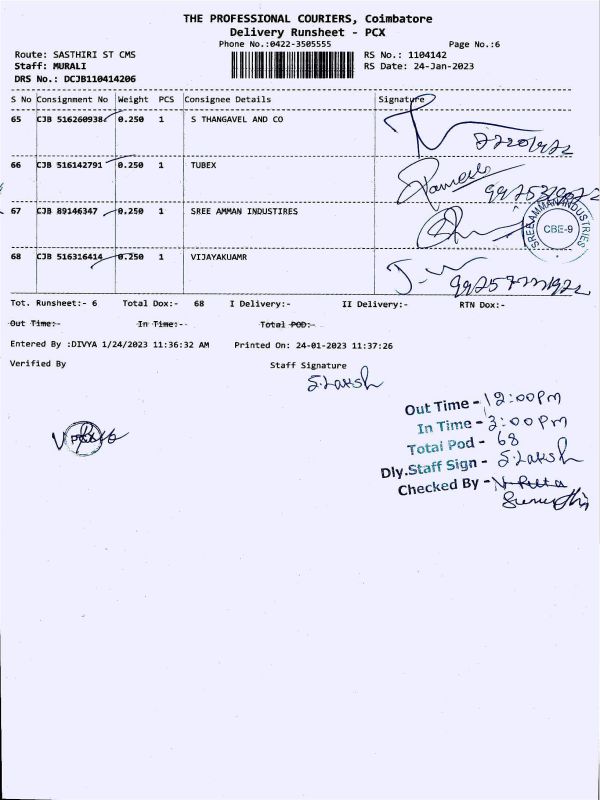 THE PROFESSIONAL COURIERS, Coimbatore
Delivery Runsheet - PCX
Phone No.:0422-3505555 Page No.:6
Route: SASTHIRI ST CMS RS No.: 1104142
Staff: MURALI RS Date: 24-Jan-2023
DRS No.: DCJB110414206
S No Consignment No Weight PCS Consignee Details Signature
65 CJB 516260938 0.250 1 S THANGAVEL AND CO
66 CJB 516142791 0.250 1 TUBEX
67 CJB 89146347 0.250 1 SREE AMMAN INDUSTIRES
SREE AMMAN INDUSTRIES CBE-9
68 CJB 516316414 0.250 1 VIJAYAKUAMR
Tot. Runsheet:- 6 Total Dox:- 68 I Delivery:- II Delivery:- RTN Dox:-
Out Time:- In Time:-- Total POD:-
Entered By :DIVYA 1/24/2023 11:36:32 AM Printed On: 24-01-2023 11:37:26
Verified By Staff Signature
S.Laksh
Out Time - 12:00Pm
In Time - 3:00Pm
Total Pod - 68
Dly.Staff Sign - S.Laksh
Checked By -